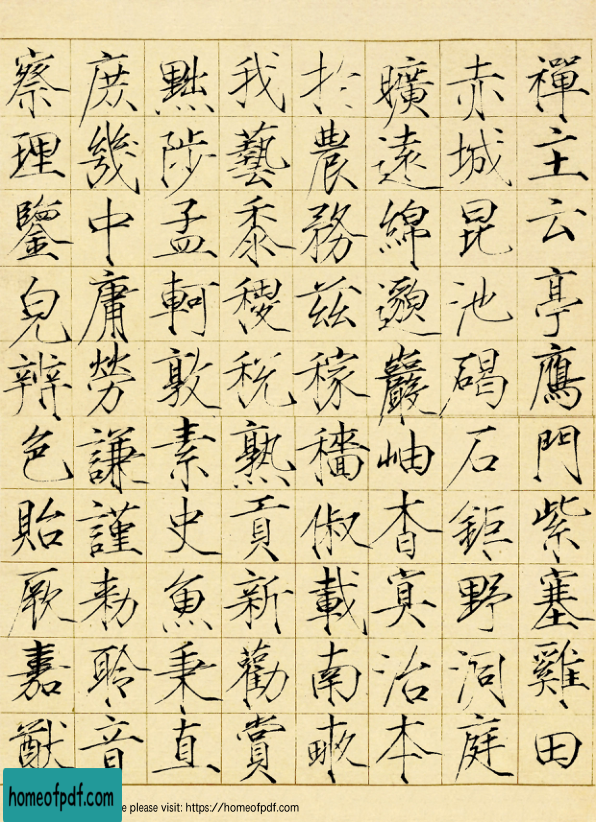 禪主云亭鷹門紫塞雞田
赤城昆池碣石鉅野洞庭
曠遠綿邈巖岫杳冥治本
於農務茲稼穡俶載南畝
我藝黍稷稅熟貢新勸賞
黜陟孟軻敦素史魚秉直
庶幾中庸勞謙謹勑聆音
察理鑒皃辨色貽厥嘉猷
homeofpdf.com
please visit: https://homeofpdf.com